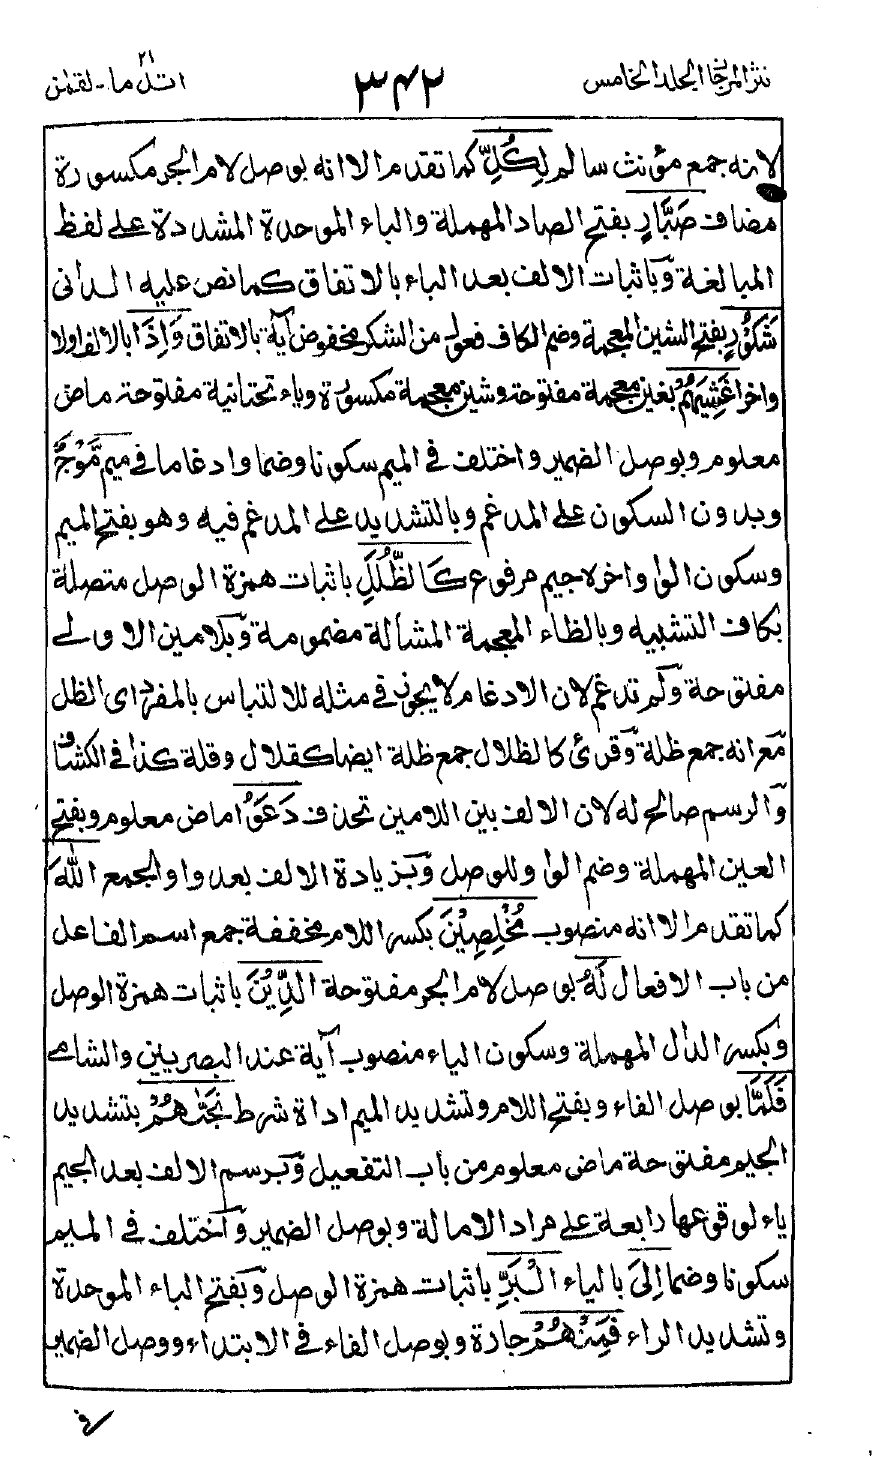 نثر المرجان المجلد الخامس
۳۴۲
اتل ما - لقمٰن
۲۱
لانه جمع مؤنث سالم لِكُلِّ كما تقدم الا انه بوصل لام الجر مكسورة
مضاف صَبَّارٍ بفتح الصاد المهملة والباء الموحدة المشددة على لفظ
المبالغة وَباثبات الالف بعد الباء بالاتفاق كما نص عليه الدانى
شَكُوْرٍ بفتح الشين المعجمة وضم الكاف فعول من الشكر مخفوض آية بالاتفاق وَاِذَا بالالف اولا
واخرا غَشِيَهُمْ بغين معجمة مفتوحة وشين معجمة مكسورة وياء تحتانية مفتوحة ماض
معلوم وبوصل الضمير واختلف فى الميم سكونا وضما وادغاما فى ميم مَّوْجٌ
وبدون السكون على المدغم وبالتشديد على المدغم فيه وهو بفتح الميم
وسكون الواو واخره جيم مرفوع كَالظُّلَلِ باثبات همزة الوصل متصلة
بكاف التشبيه وبالظاء المعجمة المشالة مضمومة وَبلامين الاولى
مفتوحة وَلم تدغم لان الادغام لا يجوز فى مثله للالتباس بالمفرد اى الظل
مَع انه جمع ظلة وَقرئ كالظلال جمع ظلة ايضا كقلال وقلة كذا فى الكشاف
وَالرسم صالح له لان الالف بين اللامين تحذف دَعَوُا ماض معلوم وبفتح
العين المهملة وضم الواو للوصل وَبزيادة الالف بعد واو الجمع اللّٰهَ
كما تقدم الا انه منصوب مُخْلِصِيْنَ بكسر اللام مخففة جمع اسم الفاعل
من باب الافعال لَهُ بوصل لام الجر مفتوحة الدِّيْنَ باثبات همزة الوصل
وَبكسر الدال المهملة وسكون الياء منصوب آية عند البصريين والشامى
فَلَمَّا بوصل الفاء وبفتح اللام وتشديد الميم اداة شرط نَجّٰىهُمْ بتشديد
الجيم مفتوحة ماض معلوم من باب التفعيل وَبرسم الالف بعد الجيم
ياء لوقوعها رابعة على مراد الامالة وبوصل الضمير وَاختلف فى الميم
سكونا وضما اِلَى بالياء الْبَرِّ باثبات همزة الوصل وَبفتح الباء الموحدة
وتشديد الراء فَمِنْهُمْ جارة وبوصل الفاء فى الابتداء ووصل الضمير